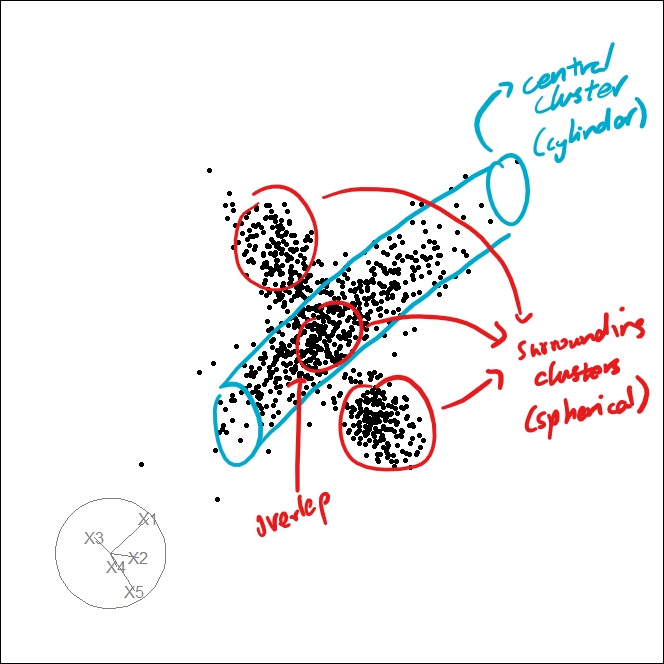 central
cluster
(cylindor)
surrounding
clusters
(spherical)
overlap
X1
X3
X2
X4
X5